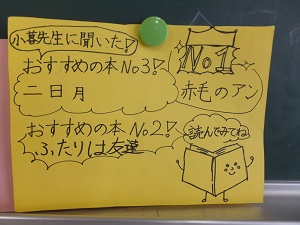 小暮先生に聞いた!
おすすめの本No3!
二日月
No1
赤毛のアン
おすすめの本No2!
ふたりは友達
読んでみてね